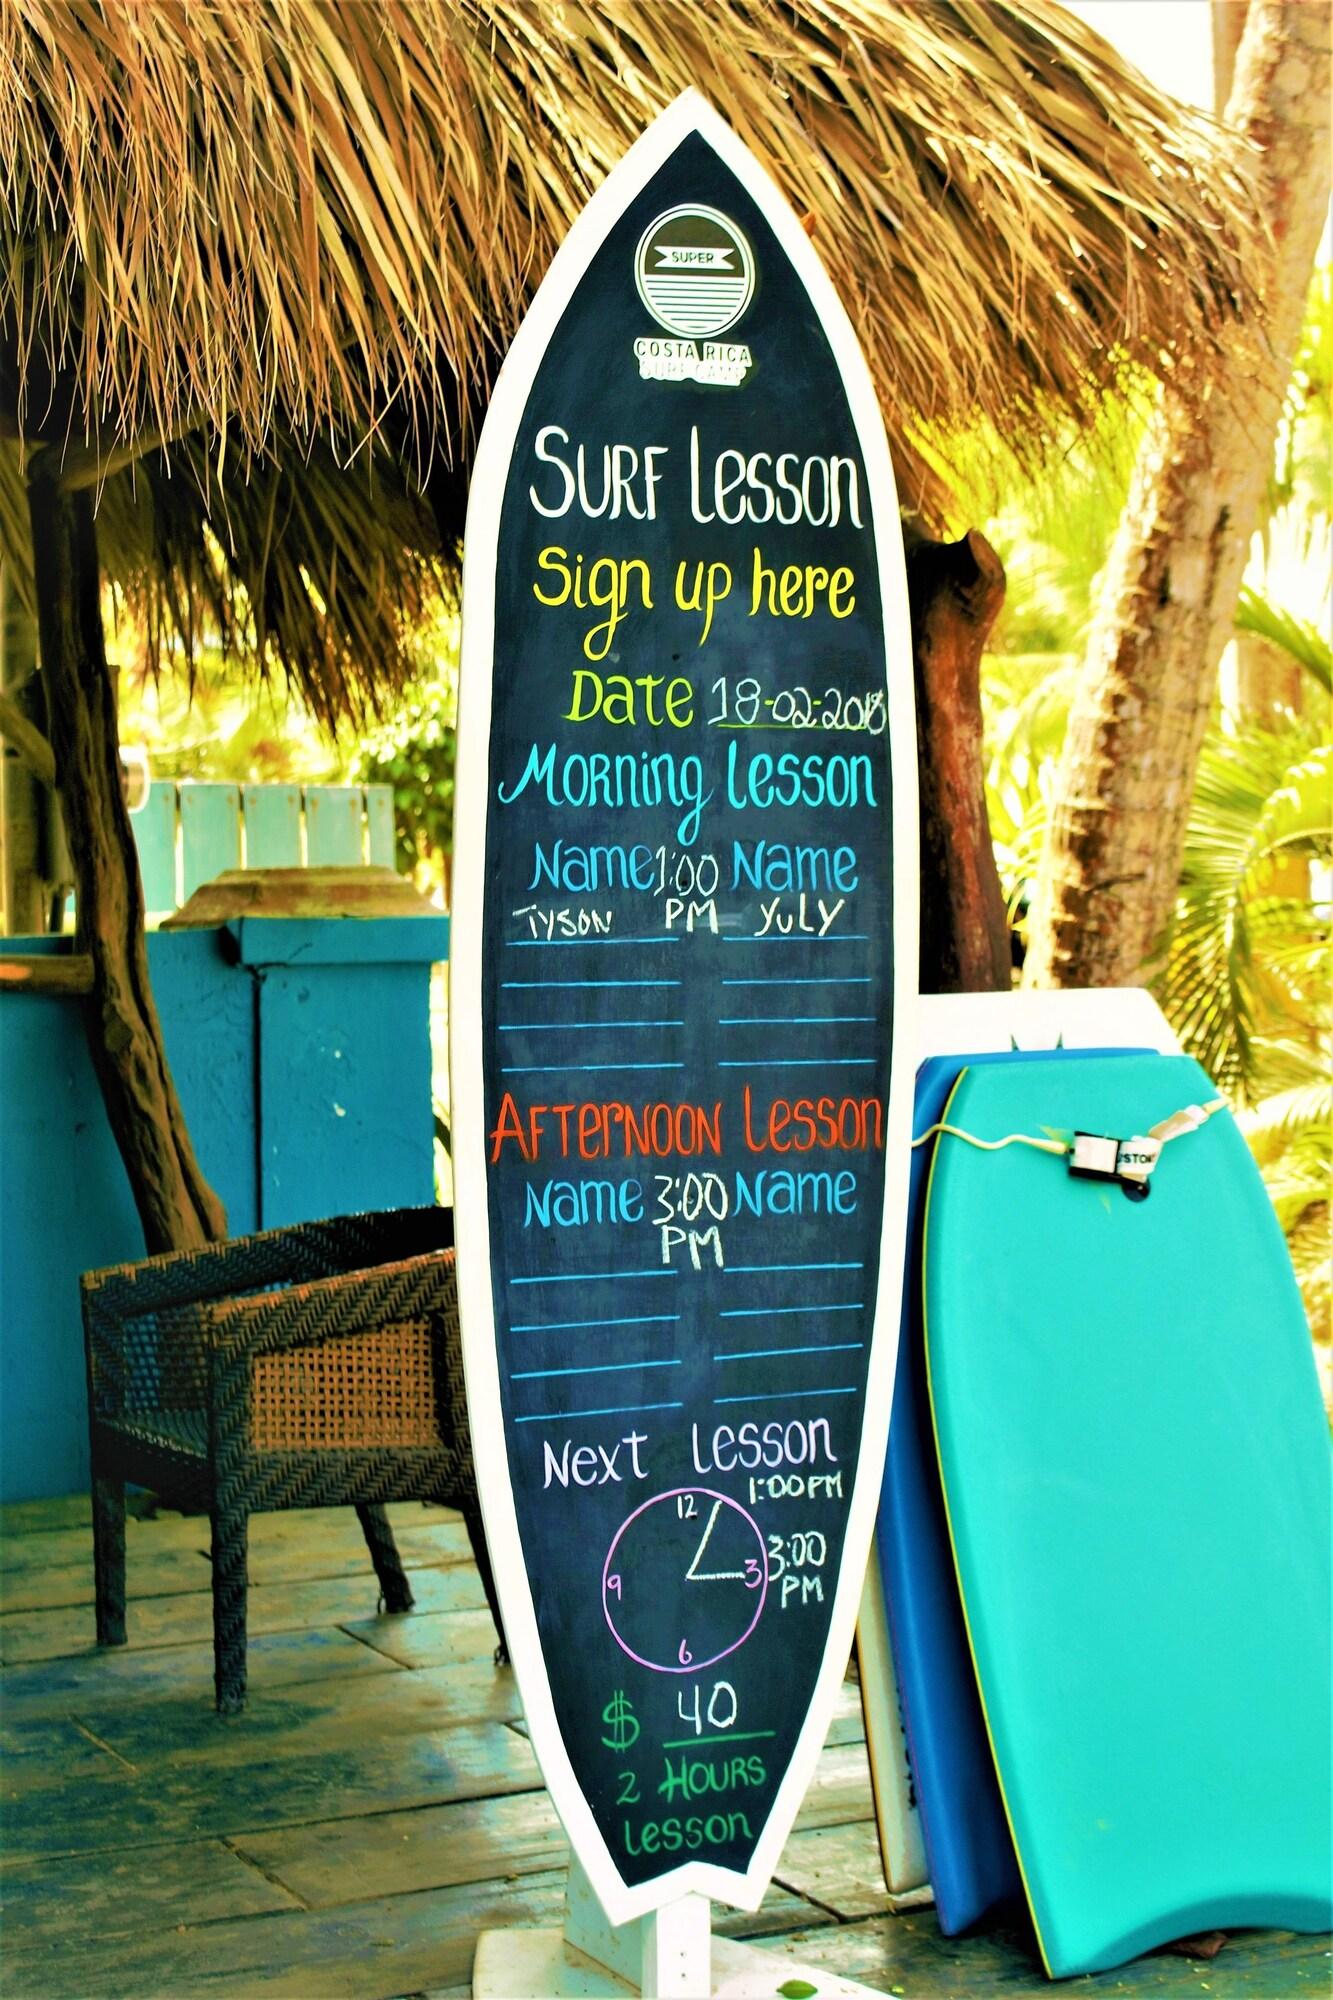 SUPER
COSTA RICA
SURF CAMP
SURF lesson
Sign up here
Date 18-02-2018
Morning lesson
Name 1:00 PM Name
TYSON YULY
AFTERNOON lesson
Name 3:00 PM Name
Next lesson
1:00PM
12
3 3:00 PM
9
6
$ 40
2 HOURS
lesson